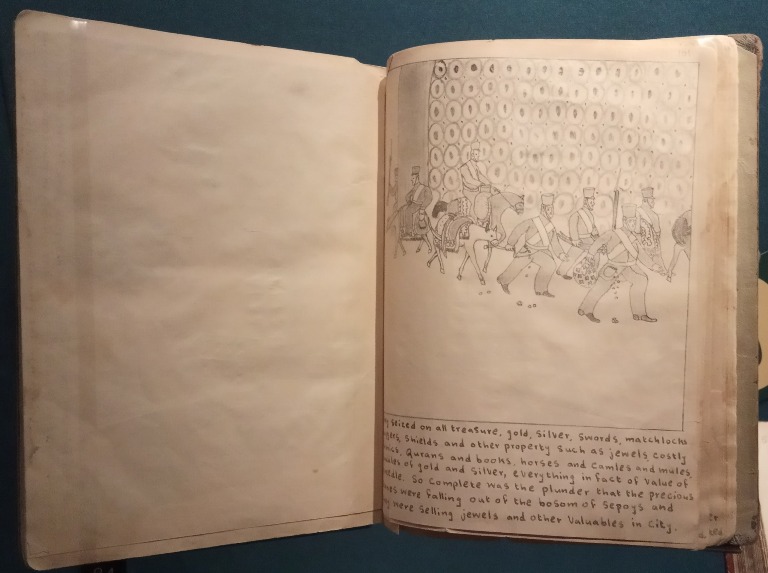 seized on all treasure, gold, silver, swords, matchlocks
shields and other property such as jewels, costly
Qurans and books, horses and camles and mules
of gold and silver, everything in fact of value of
So complete was the plunder that the precious
were falling out of the bosom of Sepoys and
were selling jewels and other valuables in city.